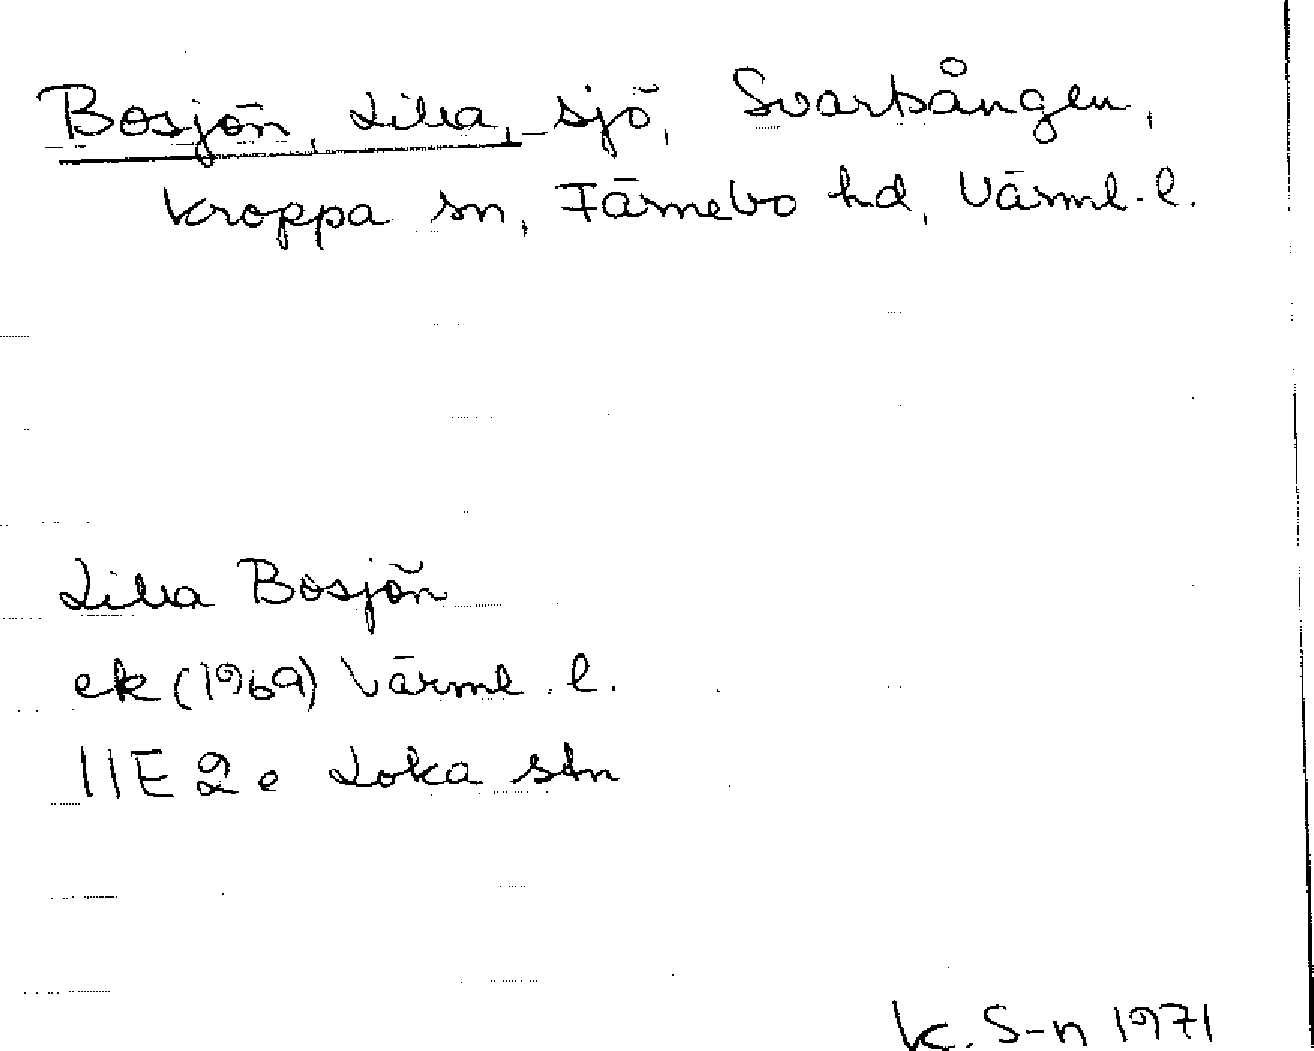 Bosjön, Lilla, sjö, Svartången,
Kroppa sn, Färnebo hd, Värml. l.
Lilla Bosjön
ek (1969) Värml. l.
11E 2e Loka stn
K. S-n 1971